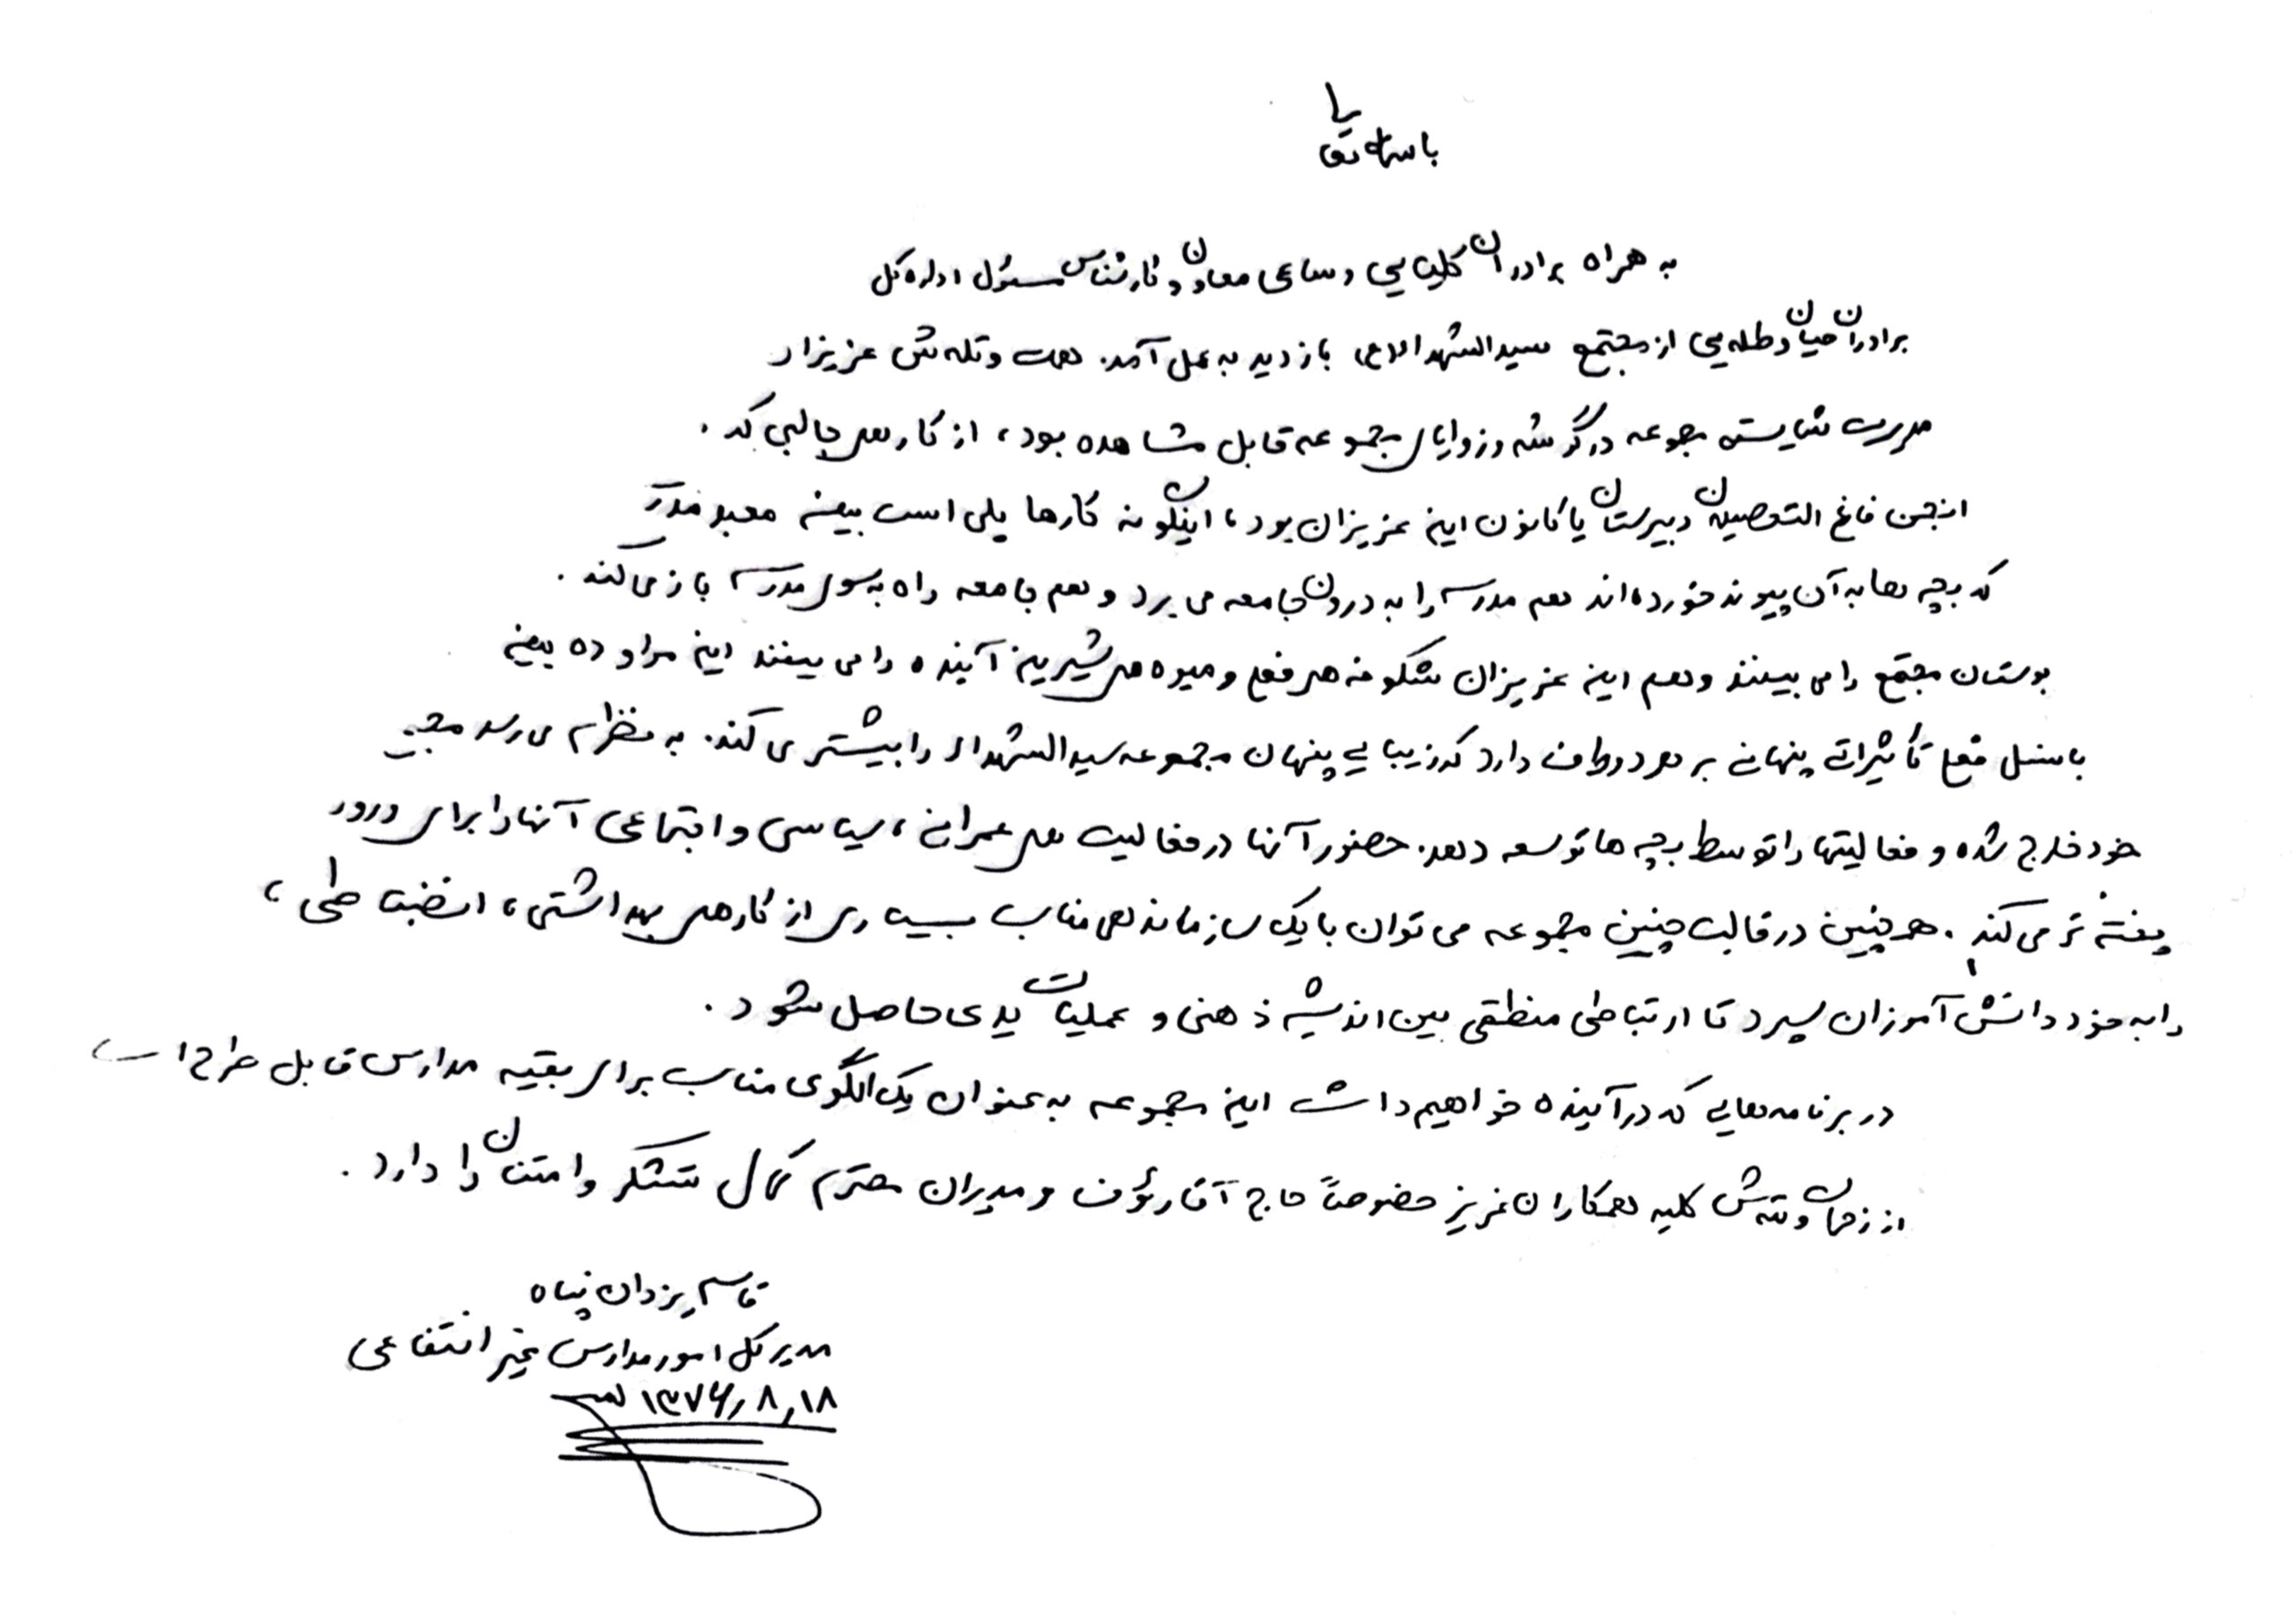 باسمه تعالی
به همراه برادران کلیایی و ساعی معاون و کارشناس مسئول اداره کل
برادران حیان و طلایی از مجتمع سیدالشهداء (ع) بازدید به عمل آمد. همت و تلاش عزیزان
مدیریت شایسته مجموعه در گوشه و زوایای مجموعه قابل مشاهده بود، از کارهای جالبی که
انجمن فارغ التحصیلان دبیرستان یا کانون این عزیزان بود، اینگونه کارها پلی است بین معبد مدرسه
که بچه ها به آن پیوند خورده اند هم مدرسه را به درون جامعه می برد و هم جامعه راه به سوی مدرسه باز می کند.
بوستان مجتمع را می بینند و هم این عزیزان شکوفه های فعلی و میوه های شیرین آینده را می بینند این مراوده بین
با نسل فعلی تأثیراتی پنهانی بر هر دو طرف دارد که زیبایی پنهان مجموعه سیدالشهداء را بیشتر می کند. به نظرم می رسد
خود خارج شده و فعالیتها را توسط بچه ها توسعه دهد. حضور آنها در فعالیت های عمرانی، سیاسی و اجتماعی آنها را برای ورود
پخته تر می کند. همچنین در قالب چنین مجموعه می توان با یک سازماندهی مناسب بسیاری از کارهای بهداشتی، انضباطی،
را به خود دانش آموزان سپرد تا ارتباطی منطقی بین اندیشه ذهنی و عملیات یدی حاصل شود.
در برنامه هایی که در آینده خواهیم داشت این مجموعه به عنوان یک الگوی مناسب برای بقیه مدارس قابل طرح است
از زحمات و تلاش کلیه همکاران عزیز خصوصاً حاج آقا رئوف و مدیران محترم کمال تشکر و امتنان را دارد.
قاسم یزدان پناه
مدیر کل امور مدارس غیر انتفاعی
۱۳۷۶/۸/۱۸